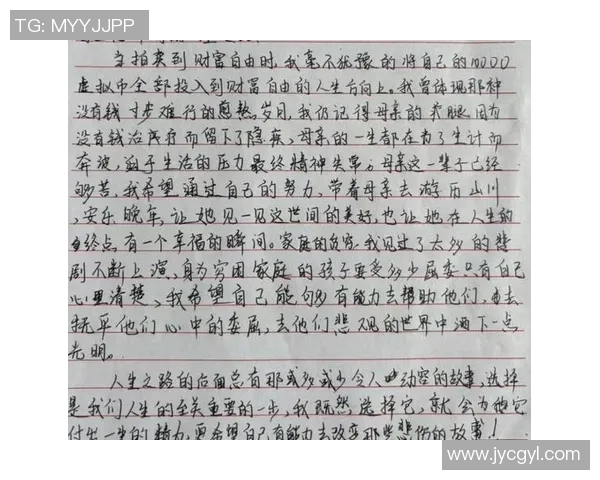 TG: MYYJJPP
当拍卖到财富自由时,我毫不犹豫的将自己的10000
虚拟币全部投入到财富自由的人生方向上。我曾体现那种
没有钱寸步难行的岁月,我仍记得母亲的腿因为
没有钱治疗而留下了隐疾、母亲的一生都在为了生计而
奔波,迫于生活的压力最终精神失常。母亲这一辈子已经
够苦,我希望通过自己的努力,带着母亲去游历山川
,安乐晚年,让她见一见这世间的美好,也让她在人生的
终点有一个幸福的瞬间。家庭的贫穷,我见过了太多的悲
剧不断上演,身为穷困家庭的孩子要受多少屈委只有自己
心里清楚、我希望自己能够有能力去帮助他们,去
抚平他们心中的委屈,去他们悲观的世界中洒下一点
光明。
人生之路的后面总有那或多或少令人动容的故事,选择
是我们人生的至关重要的一步,我既然选择它,就会为他
付出一生的精力,更希望自己有能力去改变那些悲伤的故事!
www.jycgyl.com